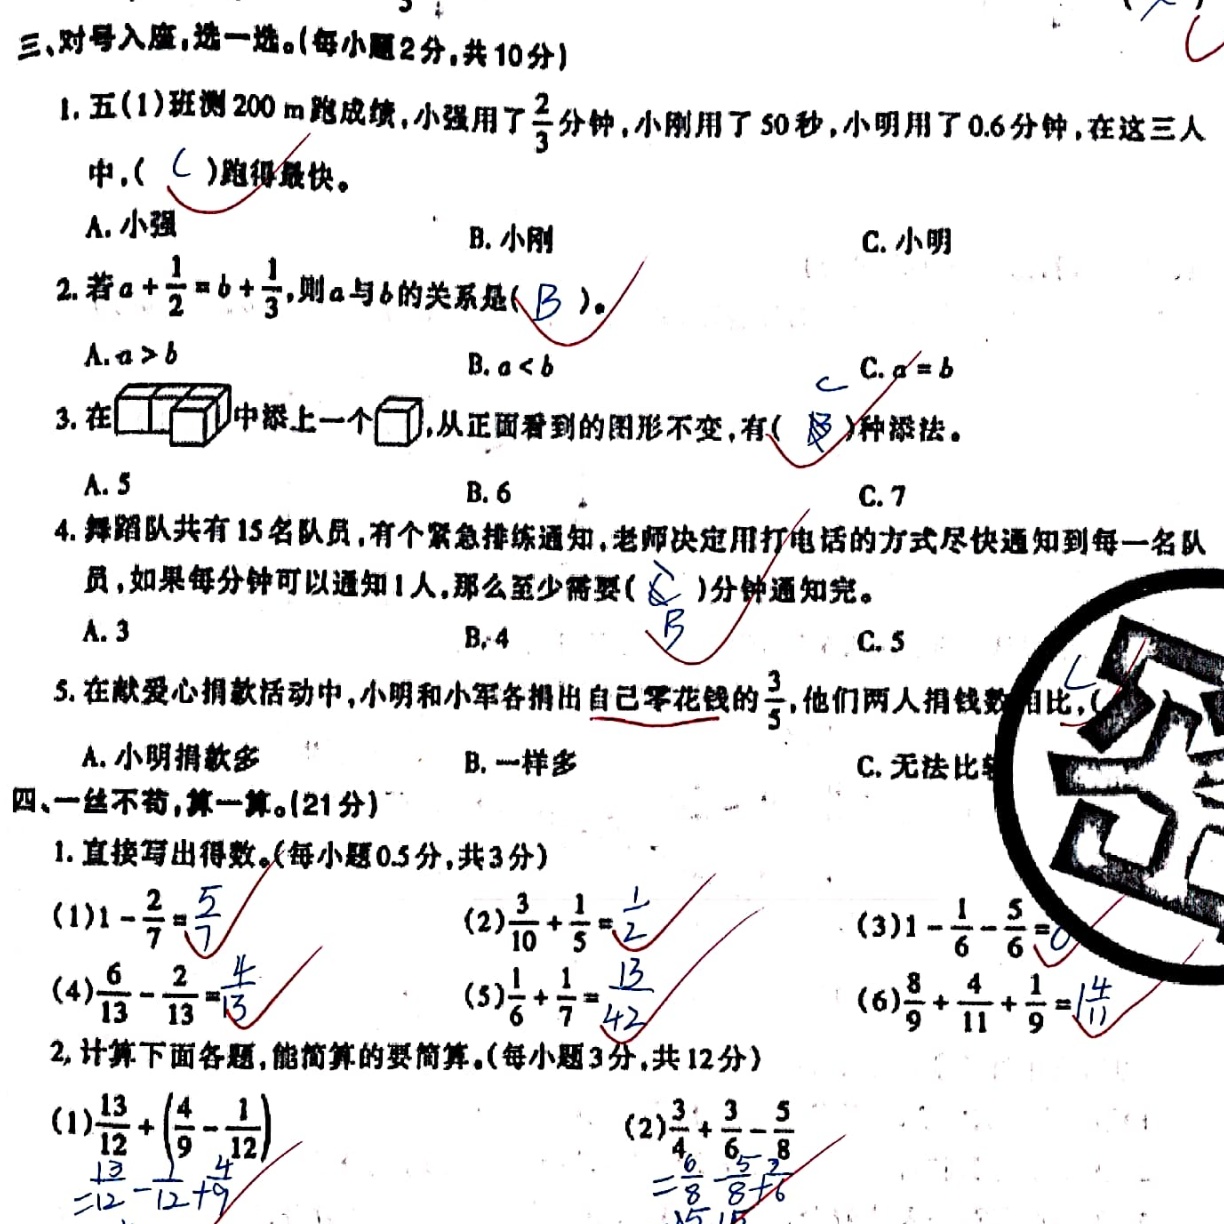 三、对号入座,选一选。(每小题2分,共10分)
1. 五(1)班测200 m跑成绩,小强用了2/3分钟,小刚用了50秒,小明用了0.6分钟,在这三人
中,( C )跑得最快。
A. 小强 B. 小刚 C. 小明
2. 若a+1/2=b+1/3,则a与b的关系是( B )。
A. a>b B. a<b C. a=b
3. 在中添上一个,从正面看到的图形不变,有( C )种添法。
A. 5 B. 6 C. 7
4. 舞蹈队共有15名队员,有个紧急排练通知,老师决定用打电话的方式尽快通知到每一名队
员,如果每分钟可以通知1人,那么至少需要( )分钟通知完。
B
A. 3 B. 4 C. 5
5. 在献爱心捐款活动中,小明和小军各捐出自己零花钱的3/5,他们两人捐钱数相比,(
A. 小明捐款多 B. 一样多 C. 无法比较
四、一丝不苟,算一算。(21分)
1. 直接写出得数。(每小题0.5分,共3分)
(1)1-2/7=5/7 (2)3/10+1/5=1/2 (3)1-1/6-5/6=0
(4)6/13-2/13=4/13 (5)1/6+1/7=13/42 (6)8/9+4/11+1/9=1 4/11
2. 计算下面各题,能简算的要简算。(每小题3分,共12分)
(1)13/12+(4/9-1/12) (2)3/4+3/6-5/8
=13/12-1/12+4/9 =6/8-5/8+3/6